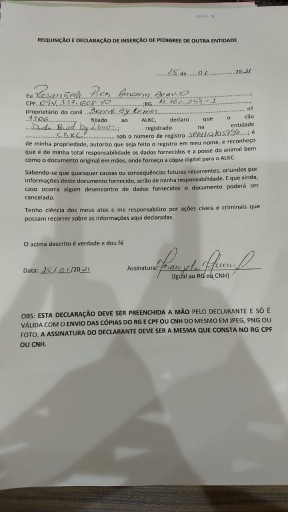 REQUISIÇÃO E DECLARAÇÃO DE INSERÇÃO DE PEDIGREE DE OUTRA ENTIDADE
25 de 01 2021
Eu Rosangela
CPF RG
proprietário do canil nº
filiado ao ALKC, declaro que o cão
registrado na entidade
CBKC sob o número de registro é
de minha propriedade, autorizo que seja feito o registro em meu nome, e reconheço
que é de minha total responsabilidade os dados fornecidos e a posse do animal bem
como o documento original em mãos, onde forneço a cópia digital para o ALKC.
Sabendo-se que quaisquer causas ou consequências futuras recorrentes, oriundos por
informações deste documento fornecido, serão de minha responsabilidade. E que ainda,
caso ocorra algum desencontro de dados fornecidos o documento poderá ser
cancelado.
Tenho ciência dos meus atos e me responsabilizo por ações cíveis e criminais que
possam recorrer sobre as informações aqui declaradas.
O acima descrito é verdade e dou fé
Data: 25/01/2021 Assinatura:
(Igual ao RG ou CNH)
OBS: ESTA DECLARAÇÃO DEVE SER PREENCHIDA A MÃO PELO DECLARANTE E SÓ É
VÁLIDA COM O ENVIO DAS CÓPIAS DO RG E CPF OU CNH DO MESMO EM JPEG, PNG OU
FOTO. A ASSINATURA DO DECLARANTE DEVE SER A MESMA QUE CONSTA NO RG CPF
OU CNH.